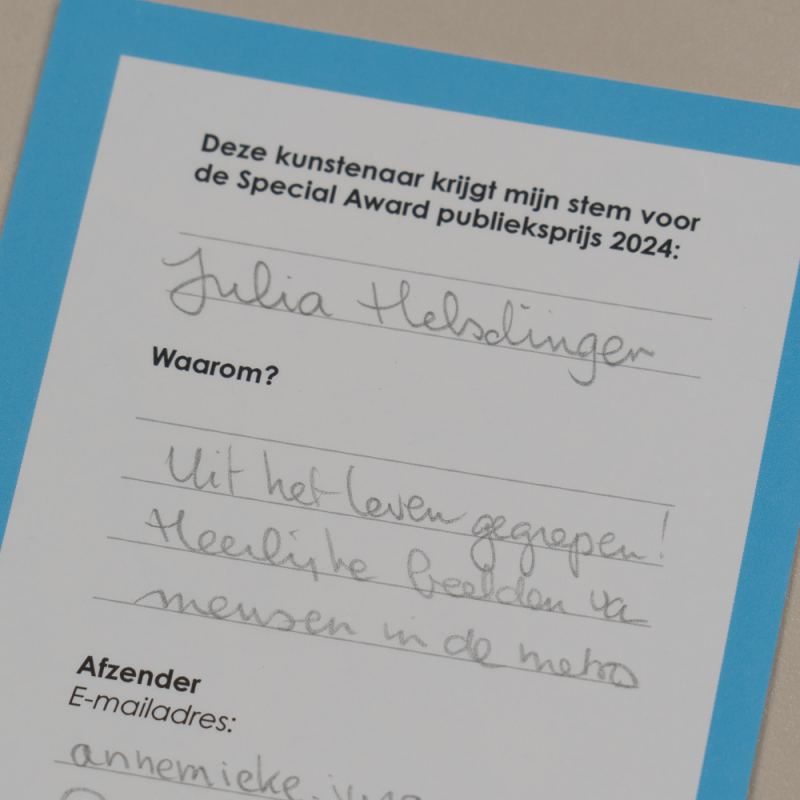 Deze kunstenaar krijgt mijn stem voor
de Special Award publieksprijs 2024:
Julia Helsdingen
Waarom?
Uit het leven gegrepen!
Heerlijke beelden va
mensen in de metro
Afzender
E-mailadres:
annemieke.